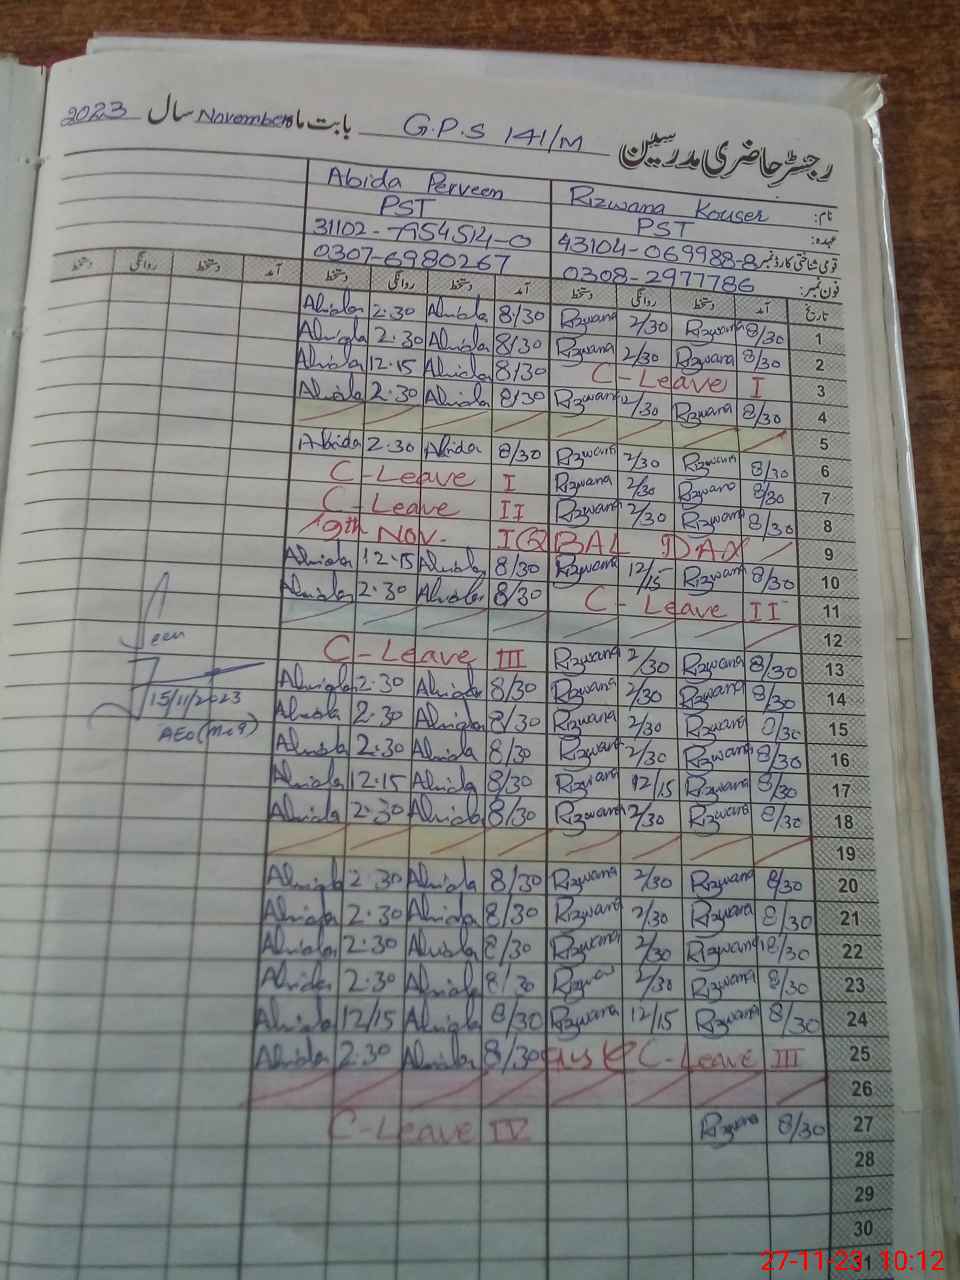 رجسٹر حاضری مدرسین G.P.S 141/M بابت ماہ November سال 2023
نام: Rizwana Kouser Abida Perveen
عہدہ: PST PST
قومی شناختی کارڈ نمبر 43104-069988-8 31102-7954514-0
فون نمبر: 0308-2977786 0307-6980267
تاریخ آمد دستخط روانگی دستخط آمد دستخط روانگی دستخط آمد دستخط روانگی دستخط
1 8/30 Rizwana 2/30 Rizwana 8/30 Abida 2.30 Abida
2 8/30 Rizwana 2/30 Rizwana 8/30 Abida 2.30 Abida
3 C-Leave I 8/30 Abida 12.15 Abida
4 8/30 Rizwana 2/30 Rizwana 8/30 Abida 2.30 Abida
5
6 8/30 Rizwana 2/30 Rizwana 8/30 Abida 2.30 Abida
7 8/30 Rizwana 2/30 Rizwana C-Leave I
8 8/30 Rizwana 2/30 Rizwana C-Leave II
9 9th NOV. IQBAL DAY
10 8/30 Rizwana 12/15 Rizwana 8/30 Abida 12.15 Abida
11 C-Leave II 8/30 Abida 2.30 Abida
12
13 8/30 Rizwana 2/30 Rizwana C-Leave III
14 8/30 Rizwana 2/30 Rizwana 8/30 Abida 2.30 Abida
15 8/30 Rizwana 2/30 Rizwana 8/30 Abida 2.30 Abida
16 8/30 Rizwana 2/30 Rizwana 8/30 Abida 2.30 Abida
17 8/30 Rizwana 12/15 Rizwana 8/30 Abida 12.15 Abida
18 8/30 Rizwana 2/30 Rizwana 8/30 Abida 2.30 Abida
19
20 8/30 Rizwana 2/30 Rizwana 8/30 Abida 2.30 Abida
21 8/30 Rizwana 2/30 Rizwana 8/30 Abida 2.30 Abida
22 8/30 Rizwana 2/30 Rizwana 8/30 Abida 2.30 Abida
23 8/30 Rizwana 2/30 Rizwana 8/30 Abida 2.30 Abida
24 8/30 Rizwana 12/15 Rizwana 8/30 Abida 12/15 Abida
25 C-Leave III 8/30 Abida 2.30 Abida
26
27 8/30 Rizwana C-Leave IV
28
29
30
31
Seen
15/11/2023
27-11-23 10:12